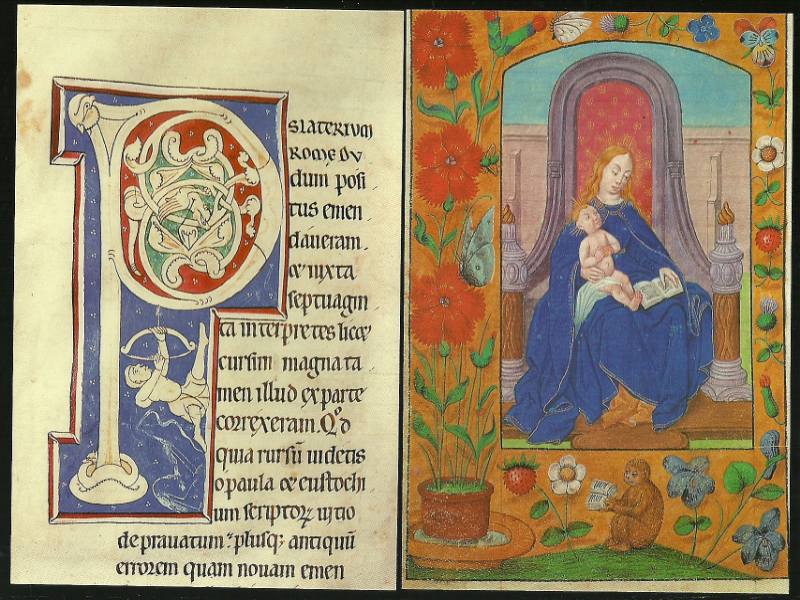 PSALTERIUM
ROME DU
dum posi
tus emen
daueram.
& iuxta
septuagin
ta interpretes lic&
cursim magna ta
men illud ex parte
correxeram. Qd
quia rursū uidetis
o paula & eustochi
um scriptoꝝ uitio
deprauatum plusq; antiquū
errorem quam nouam emen